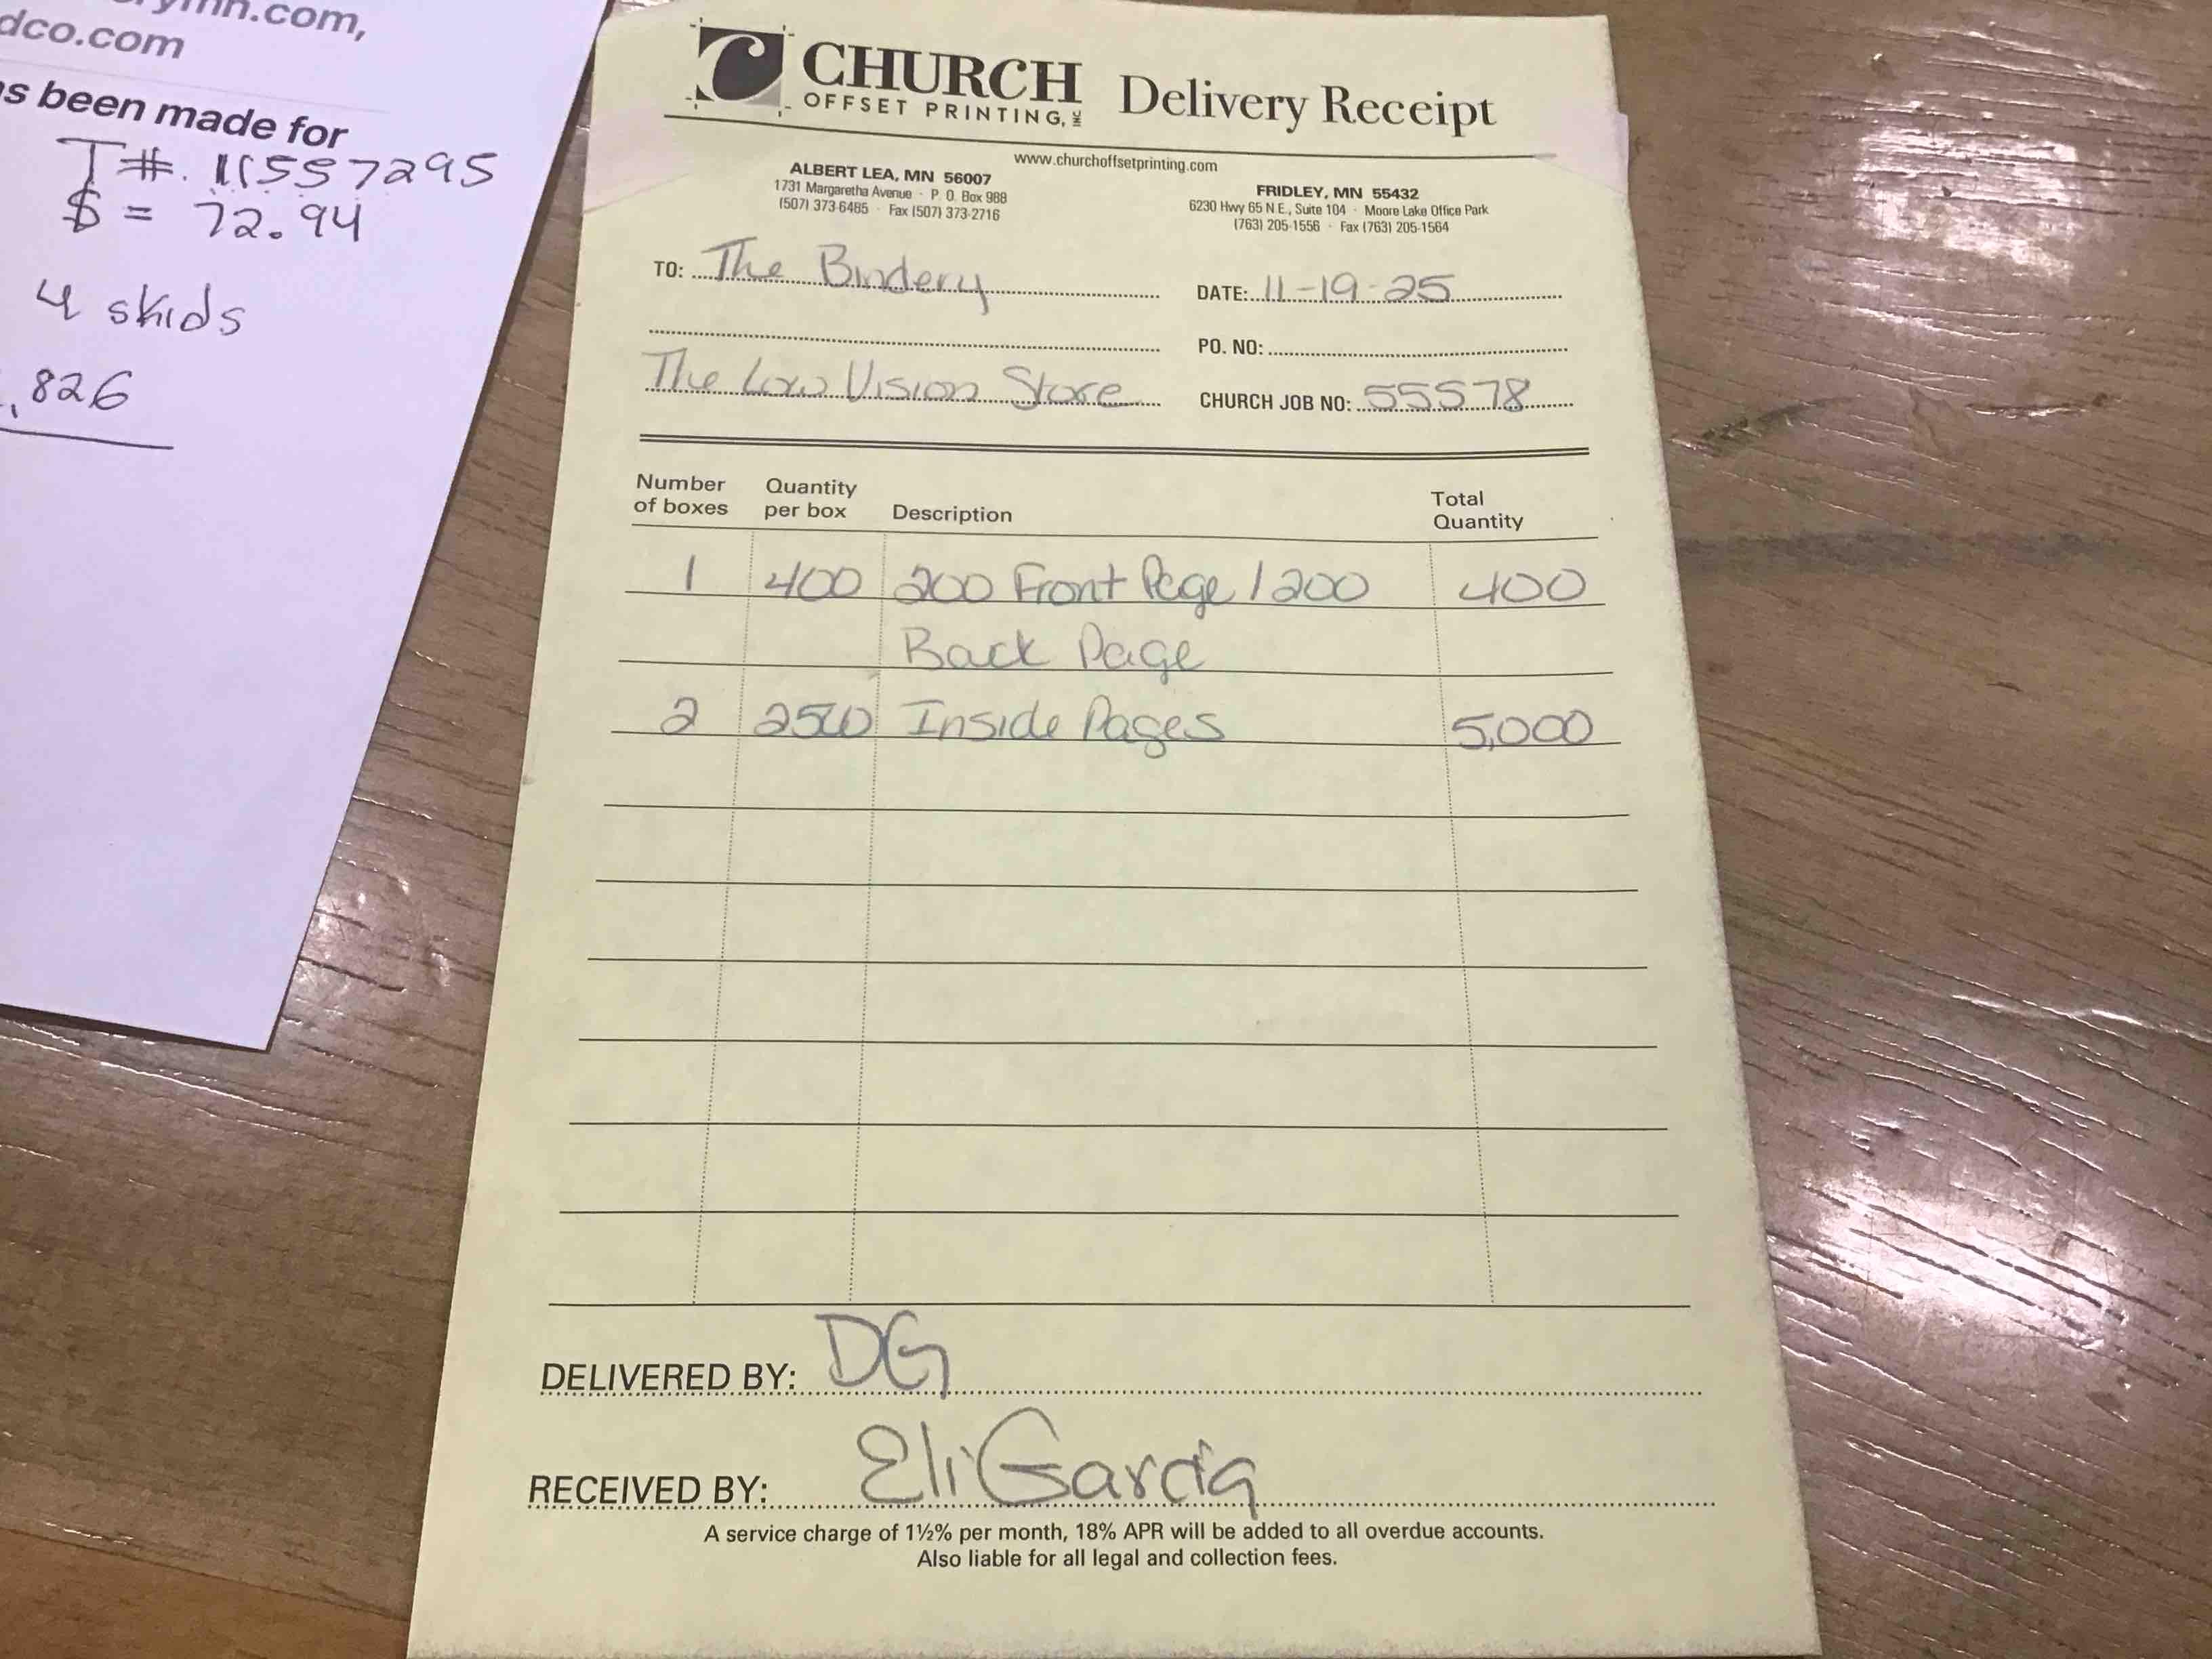 dco.com
s been made for
T#. 11557295
$ = 72.94
4 skids
,826
CHURCH
OFFSET PRINTING, INC
Delivery Receipt
www.churchoffsetprinting.com
ALBERT LEA, MN 56007
1731 Margaretha Avenue · P. O. Box 988
(507) 373-6485 · Fax (507) 373-2716
FRIDLEY, MN 55432
6230 Hwy 65 N.E., Suite 104 · Moore Lake Office Park
(763) 205-1556 · Fax (763) 205-1564
TO: The Bindery
DATE: 11-19-25
PO. NO:
The Low Vision Store
CHURCH JOB NO: 55578
Number of boxes Quantity per box Description Total Quantity
1 400 200 Front Page / 200 400
Back Page
2 2500 Inside Pages 5,000
DELIVERED BY: DG
RECEIVED BY: Eli Garcia
A service charge of 1½% per month, 18% APR will be added to all overdue accounts.
Also liable for all legal and collection fees.